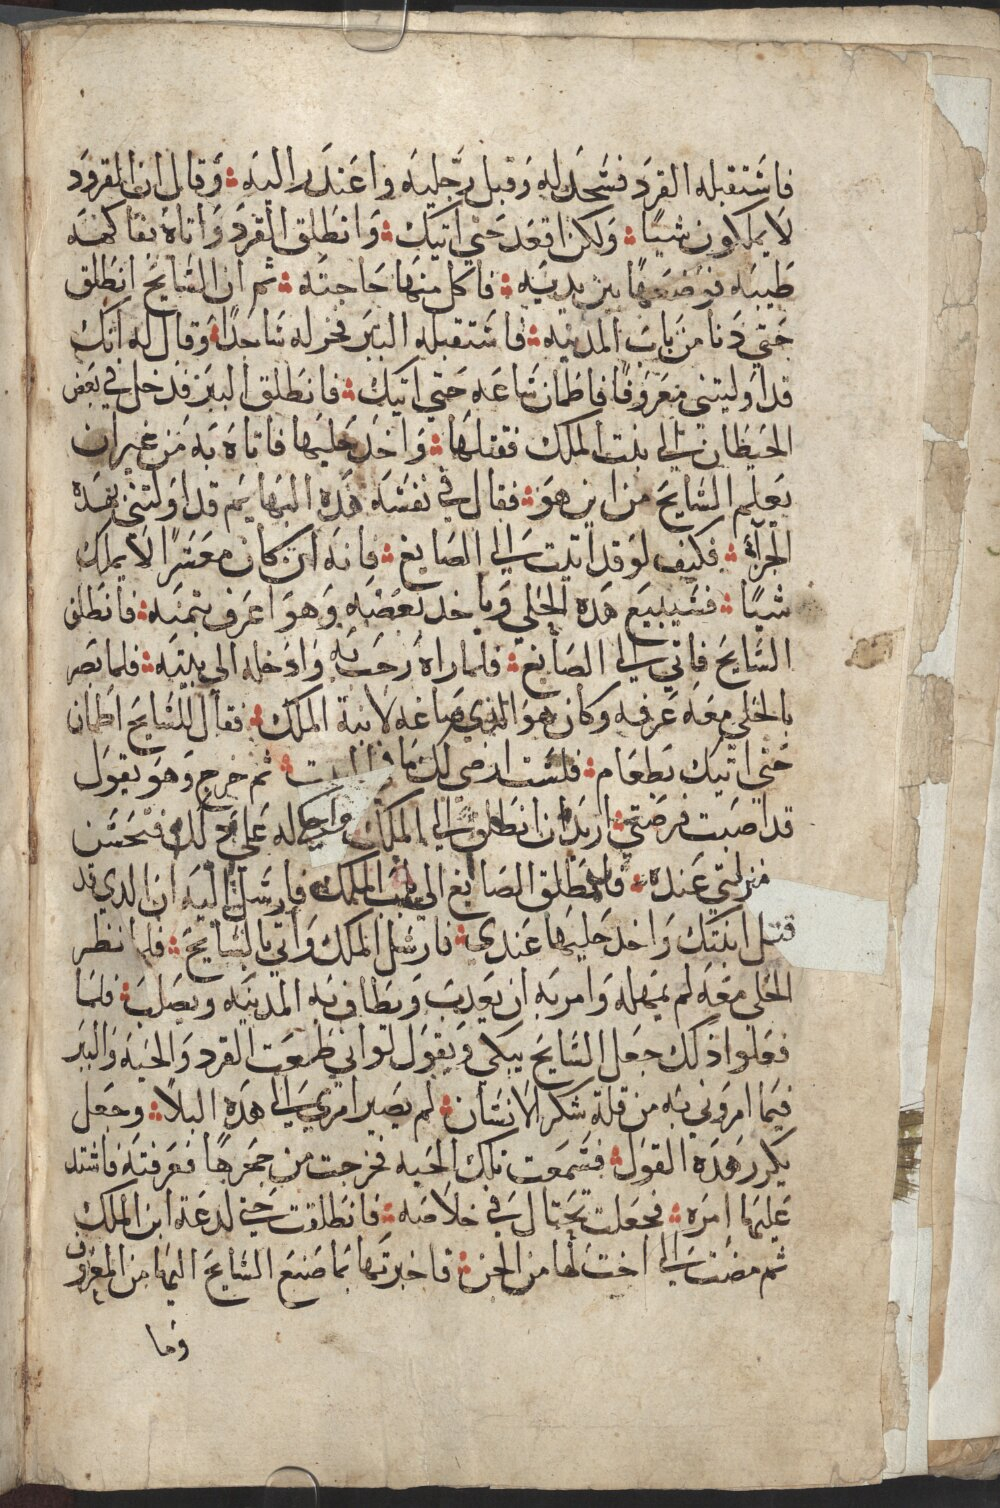 فاستقبله القرد فسجد له وقبل رجليه واعتدر اليه ؞ وقال ان القرود
لا يملكون شيا ؞ ولكن اقعد حتي اتيك ؞ وانطلق القرد واتاه بفاكهه
طيبه فوضعها بين يديه ؞ فاكل منها حاجته ؞ ثم ان السايح انطلق
حتي دنا من باب المدينه ؞ فاستقبله الببر فخر له ساجدا ؞ وقال له انك
قد اوليتني معروفا فاطمان ساعه حتي اتيك ؞ فانطلق الببر فدخل في بعض
الحيطان الي بنت الملك فقتلها ؞ واخد حليها فاتاه به من غير ان
يعلم السايح من اين هو ؞ فقال في نفسه هده البهايم قد اولتني بهده
الجرآة ؞ فكيف لو قد اتيت الي الصايغ ؞ فانه ان كان معسرا لا يملك
شيا ؞ فسيبيع هده الحلي وياخد بعضه وهو اعرف بتمنه ؞ فانطلق
السايح فاتي الي الصانغ ؞ فلما راه رحب به وادخله الي بيته ؞ فلما بصر
بالحلي معه عرفه وكان هو الدي صاغه لابنة الملك ؞ فقال للسايح اطمان
حتي اتيك بطعام ؞ فلست ارضي لك ما في البيت ؞ ثم خرج وهو يقول
قد اصبت فرصتي اريد ان انطلق الي الملك واحيله علي دلك فتحسن
منزلتي عنده ؞ فانطلق الصايغ الي باب الملك فارسل اليه ان الدي قد
قتل ابنتك واخد حليها عندي ؞ فارسل الملك واتي بالسايح ؞ فلما نظر
الحلي معه لم يمهله وامر به ان يعدب ويطاف به المدينه ويصلب ؞ فلما
فعلوا دلك جعل السايح يبكي ويقول لو اني طمعت القرد والحيه والببر
فيما امروني به من قلة شكر الانسان ؞ لم يصير امري الي هده البلا ؞ وجعل
يكرر هده القول ؞ فسمعت تلك الحيه فخرجت من جحرها فعرفته فاشتد
عليها امره ؞ فجعلت تحتال في خلاصه ؞ فانطلقت حتي لدغة ابن الملك
ثم مضت الي اخت لها من الجن ؞ فاخبرتها بما صنع السايح اليها من المعروف
وما